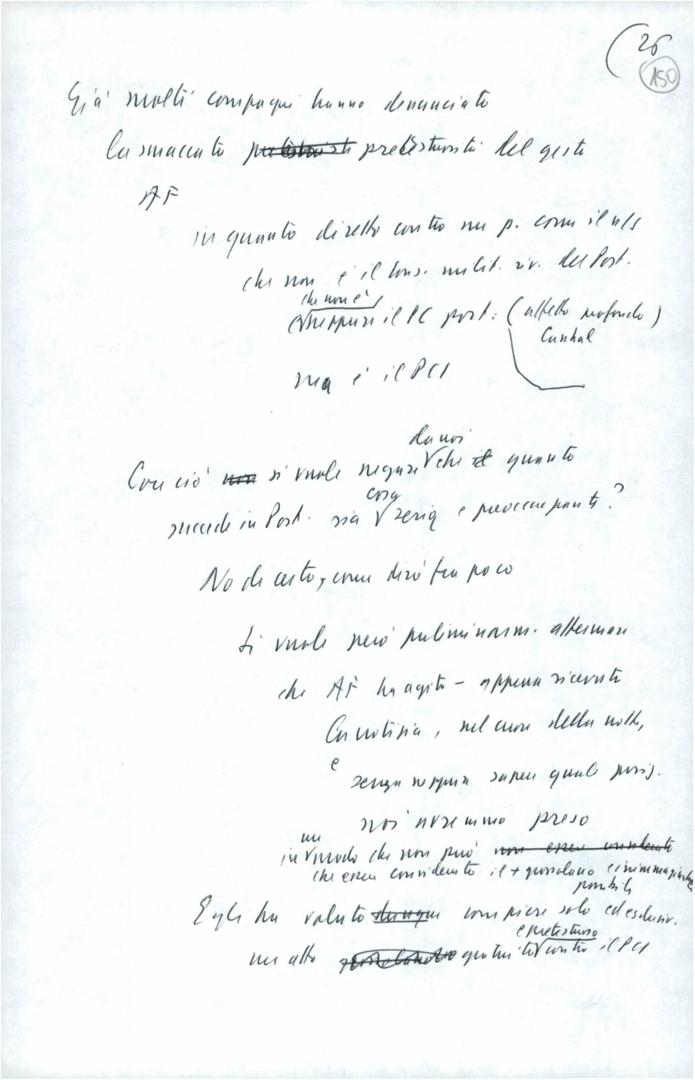 26
150
Già molti compagni hanno denunciato
la smaccata pretestuosità del gesto
AF
in quanto diretto contro un p. come il ns
che non è il Cons. milit. riv. del Port.
che non è
e neppure il PC port. (affetto profondo)
Cunhal
ma è il PCI
da noi
Con ciò non si vuole negare che il quanto
cosa
succede in Port. sia seria e preoccupante?
No di certo, come dirò fra poco
Si vuole però preliminarm. affermare
che AF ha agito – appena ricevuta
la notizia, nel cuore della notte,
e
senza neppure sapere quale posiz.
noi avremmo preso
un
in modo che non può non esser considerato
che esser considerato il + grossolano e inimmaginabile
possibile
Egli ha voluto dunque compiere solo ed esclusiv.
e pretestuoso
un atto grossolano gratuito contro il PCI